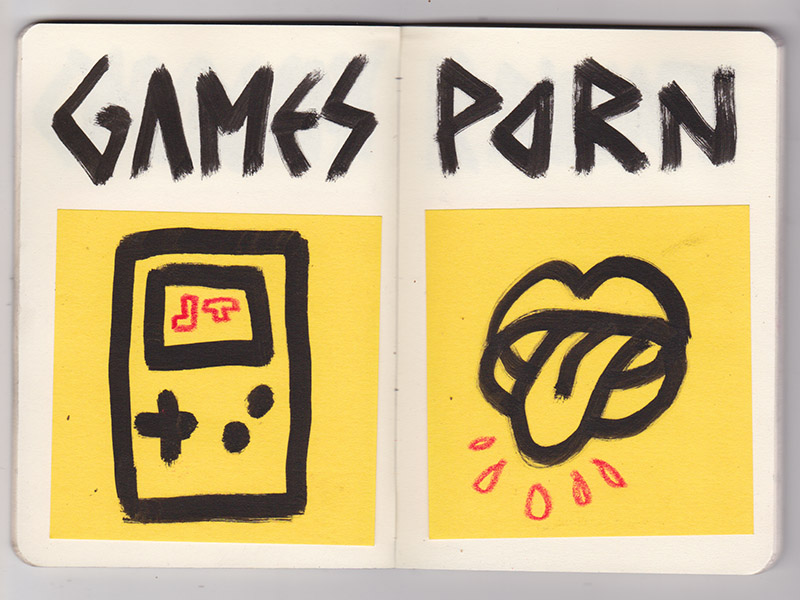 GAMES
PORN